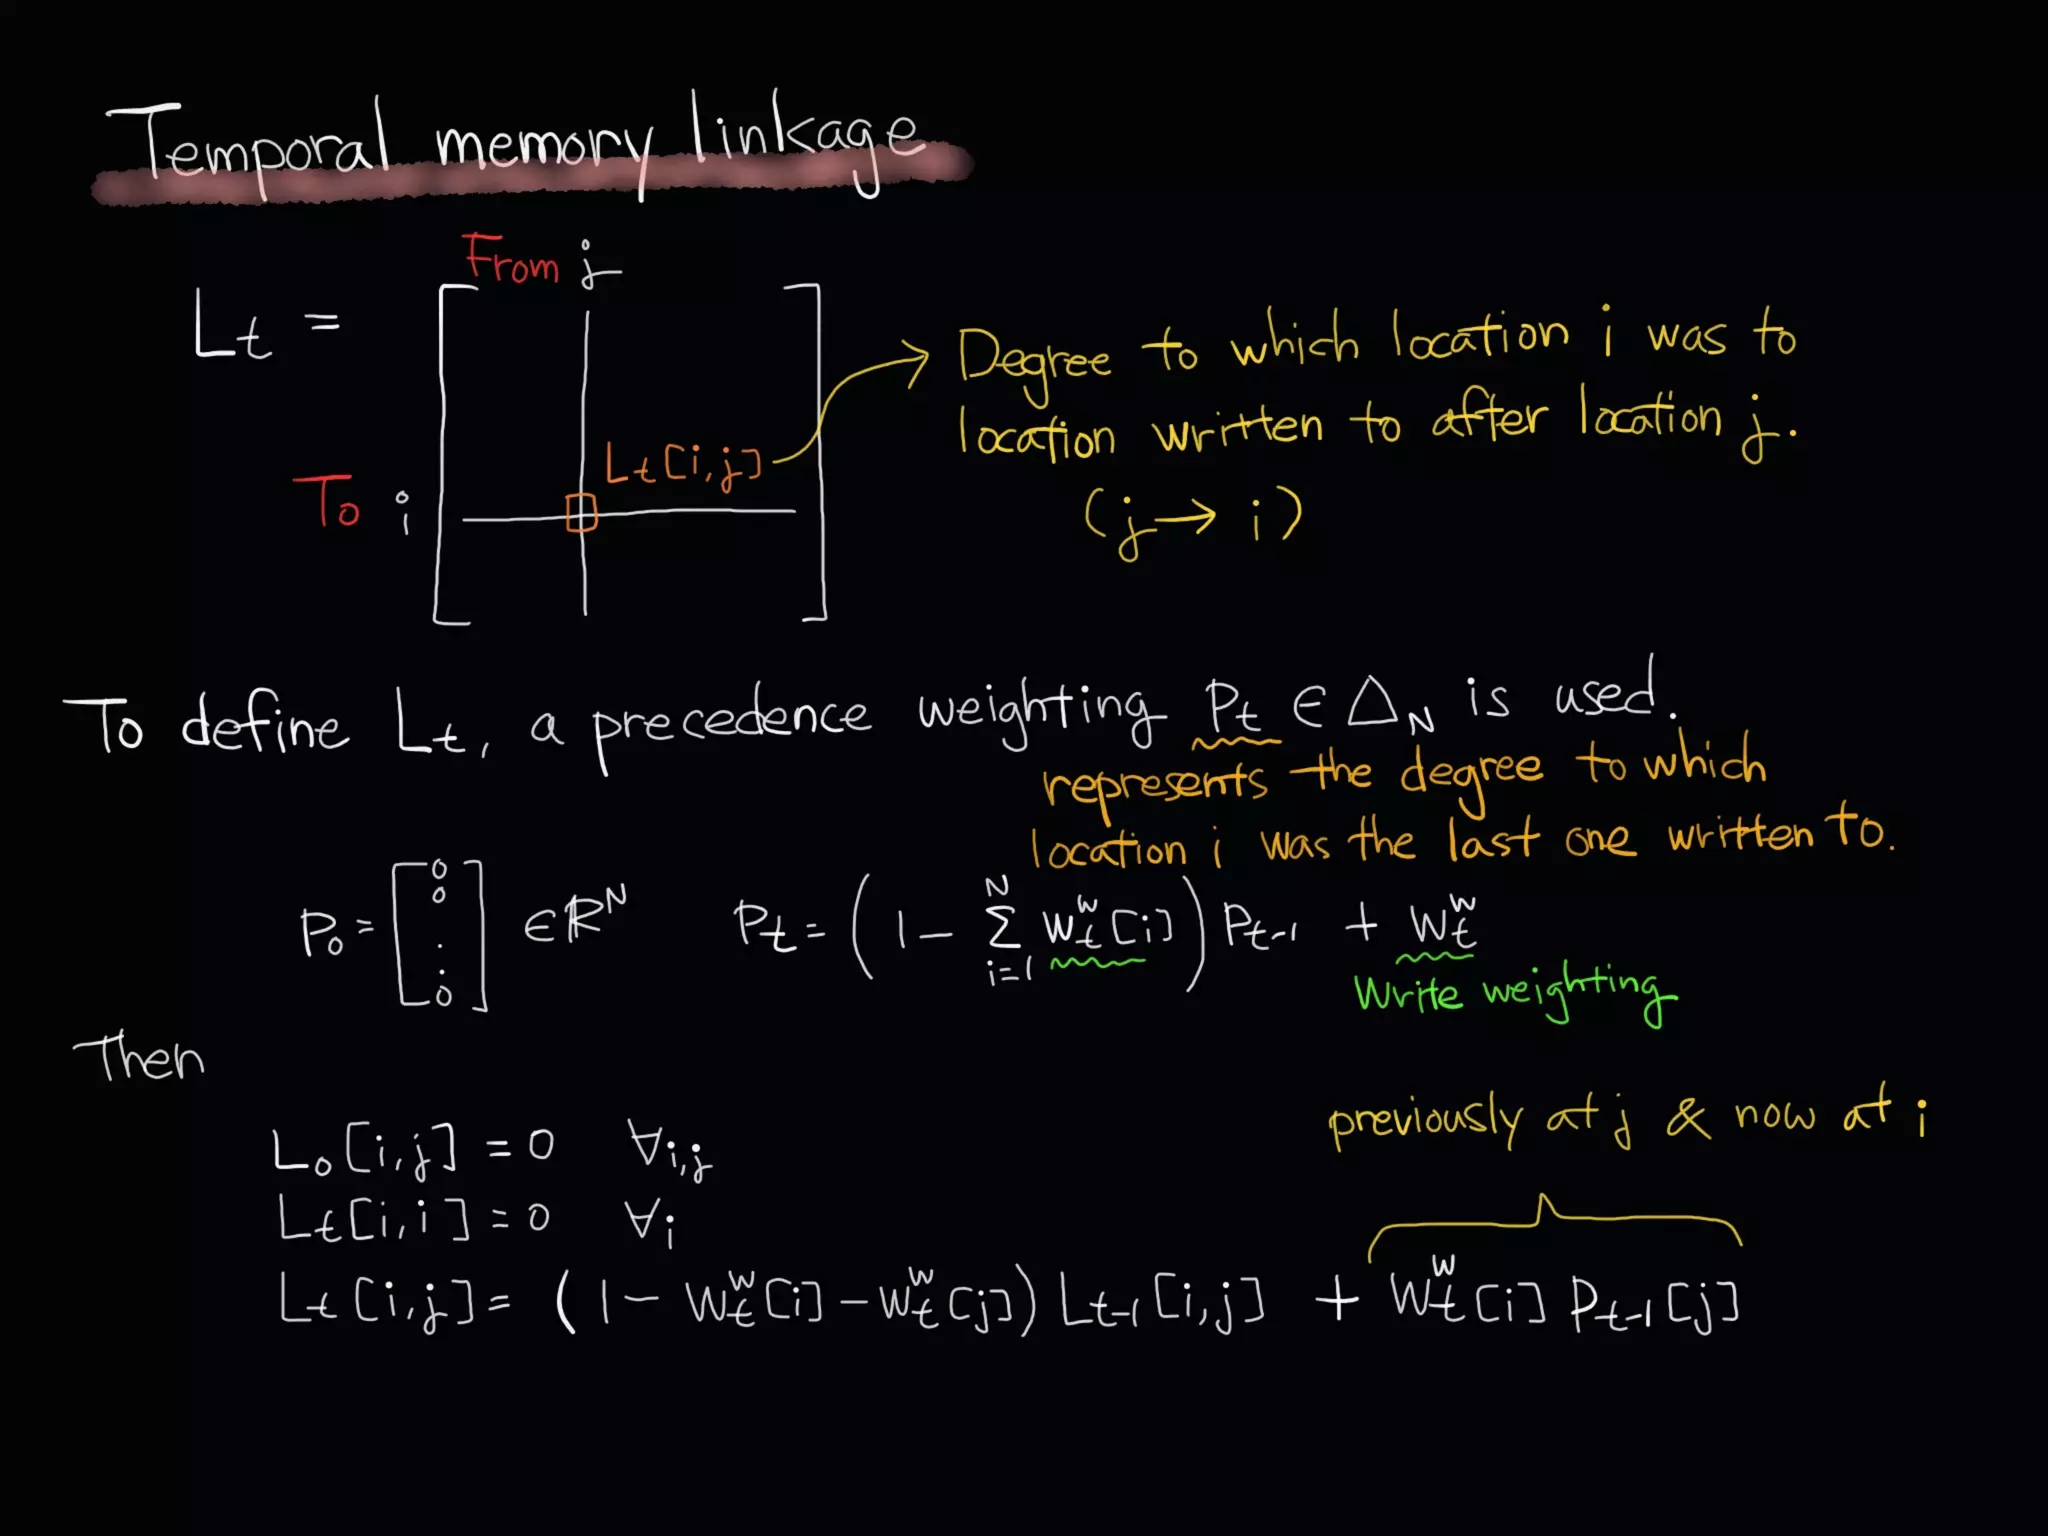 Temporal memory linkage
From j
Lt =
To i
Lt[i,j]
Degree to which location i was to
location written to after location j.
(j → i)
To define Lt, a precedence weighting Pt ∈ △N is used.
represents the degree to which
location i was the last one written to.
P0 = [0 0 . . 0] ∈ ℝ^N
Pt = (1 - Σ_{i=1}^{N} W_t^w[i]) Pt-1 + W_t^w
Write weighting
Then
previously at j & now at i
L0[i,j] = 0 ∀i,j
Lt[i,i] = 0 ∀i
Lt[i,j] = (1 - W_t^w[i] - W_t^w[j]) Lt-1[i,j] + W_t^w[i] Pt-1[j]